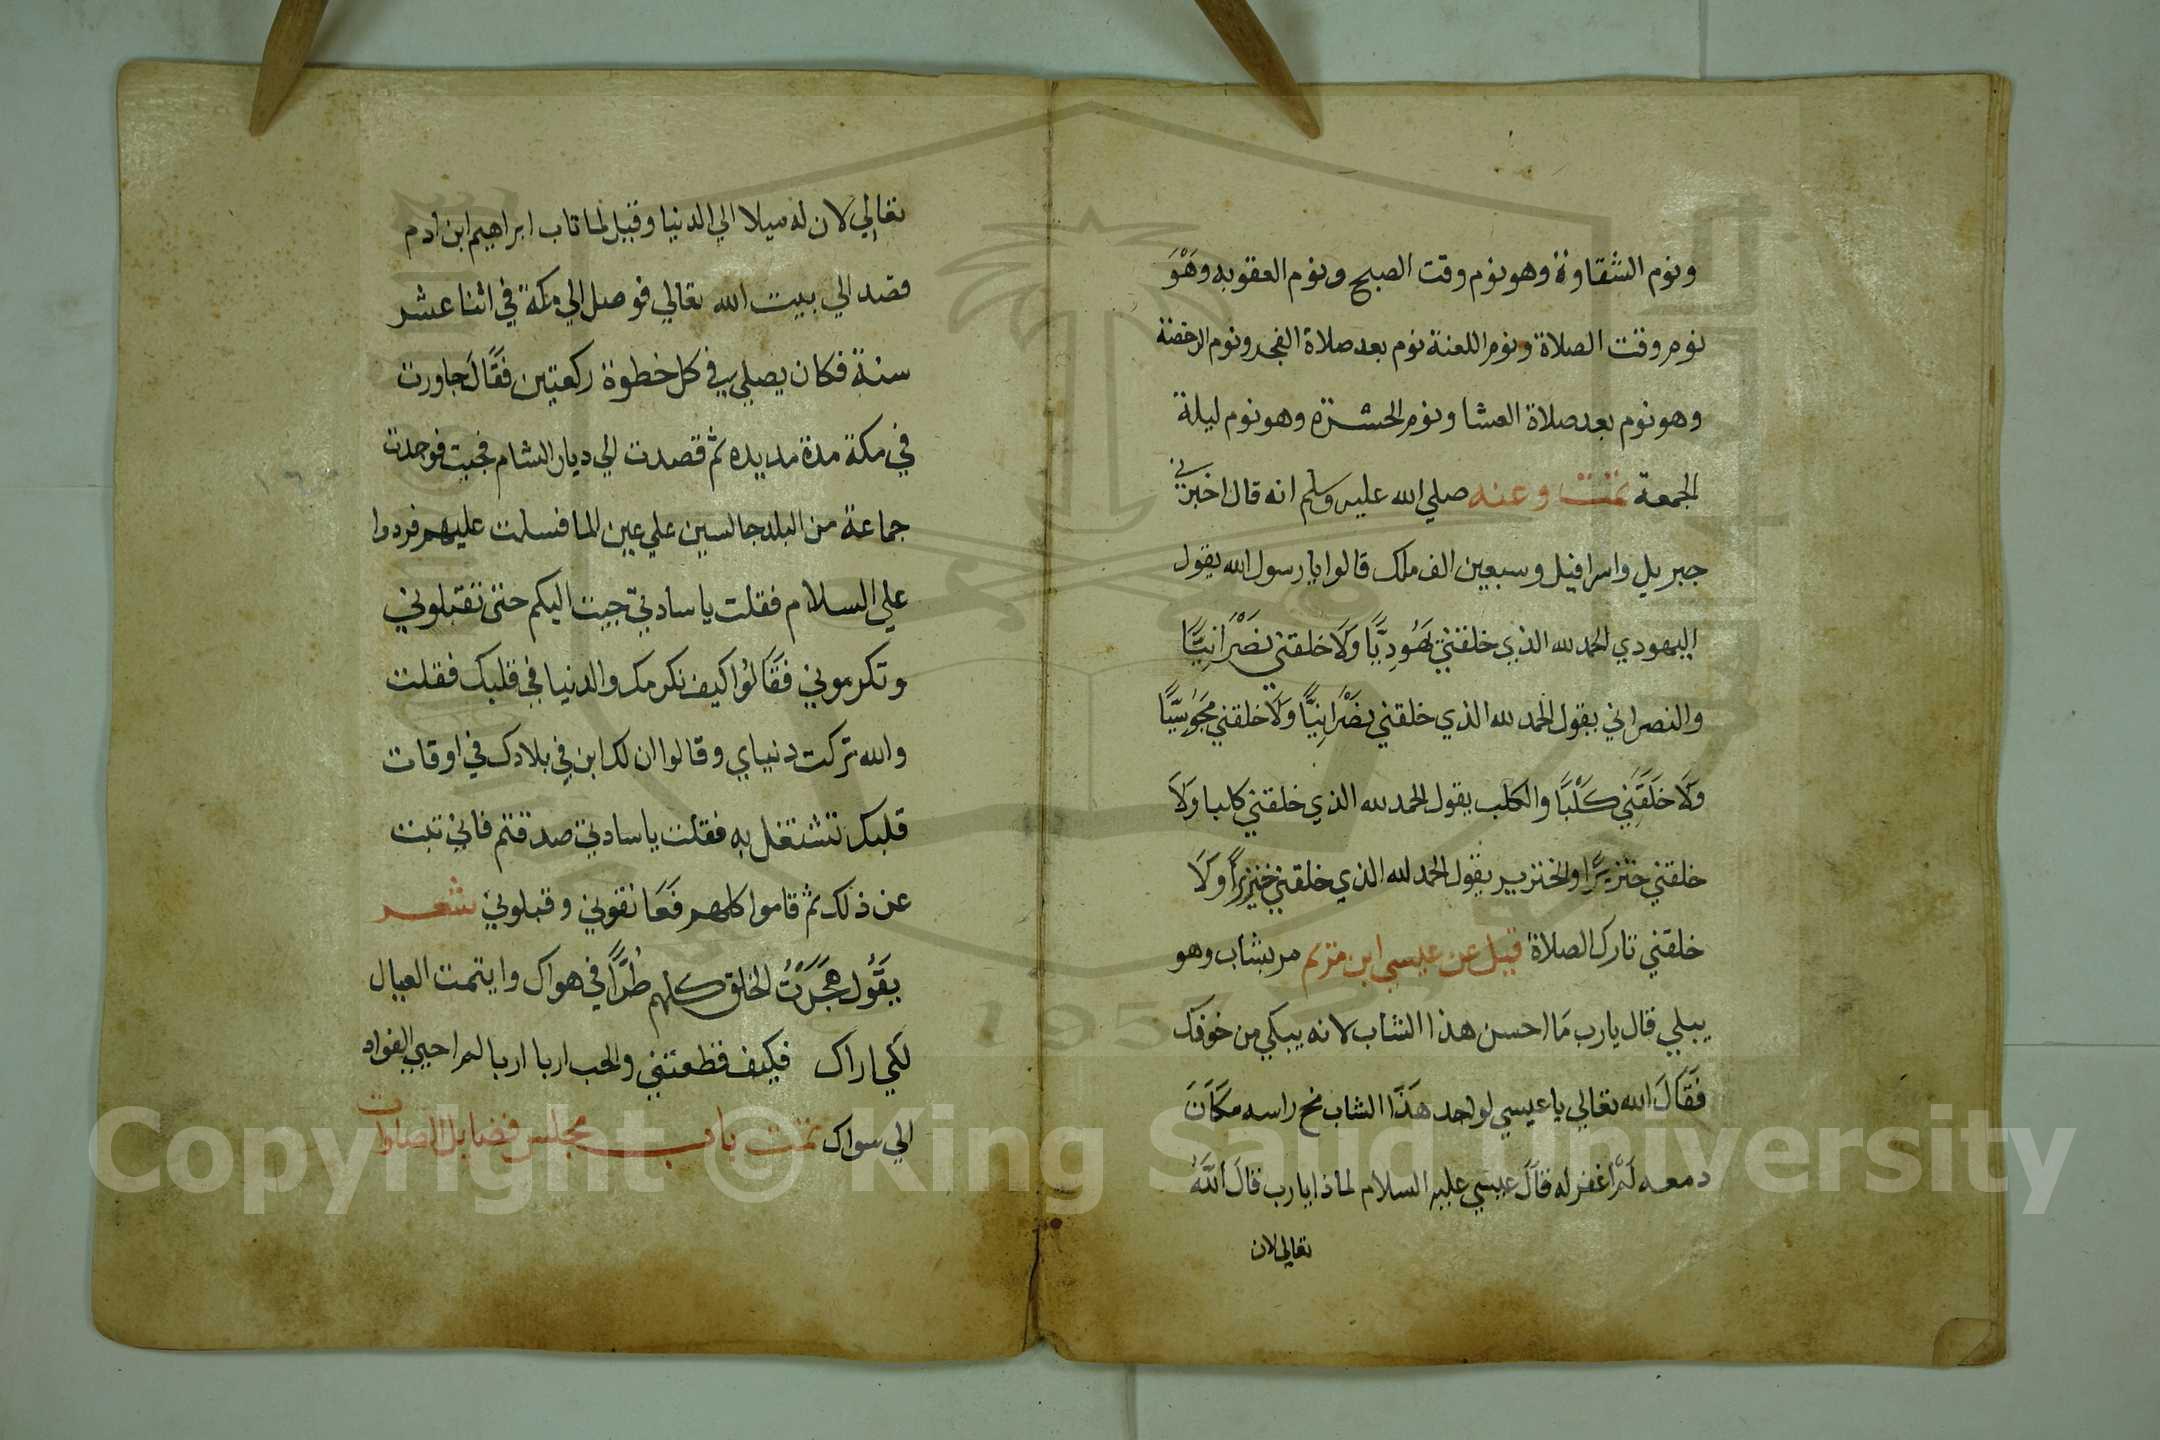 ونوم الشقاوة وهو نوم وقت الصبح ونوم العقوبه وَهْوَ
نوم وقت الصلاة ونوم اللعنة نوم بعد صلاة الفجر ونوم الرخصة
وهو نوم بعد صلاة العشا ونوم الحسرة وهو نوم ليلة
الجمعة تمت وعنه صلي الله عليه وسلم انه قال اخبرني
جبريل واسرافيل وسبعين الف ملك قالوا يا رسول الله يقول
اليهودي الحمد لله الذي خلقني يَهُودِيًّا وَلَا خلقني نَصْرَانِيًّا
والنصراني يقول الحمد لله الذي خلقني نَصْرَانِيًّا وَلَا خلقني مَجُوسِيًّا
وَلَا خَلَقَنِي كَلْبًا والكلب يقول الحمد لله الذي خلقني كلبا وَلَا
خلقني خنزيرًا والخنزير يقول الحمد لله الذي خلقني خنزيرًا وَلَا
خلقني تارك الصلاة قيل عن عيسي ابن مريم مر بشاب وهو
يبكي قال يارب مَا احسن هذا الشاب لانه يبكي من خوفك
فَقَالَ الله تعالي يا عيسي لو احد هَذَا الشاب مخ راسه مَكَانَ
دمعه لَمْ اغفر له قَالَ عيسي عليه السلام لماذا يارب قَالَ اللهُ
تعالي لان
تعالي لان له ميلا الي الدنيا وقيل لما تاب ابراهيم ابن ادم
قصد الي بيت الله تعالي فوصل الي مكة في اثنا عشر
سنة فكان يصلي في كل خطوة ركعتين فَقَالَ جاورت
في مكة مدة مديده ثم قصدت الي ديار الشام فجيت فوجدت
جماعة من البلد جالسين علي عين الما فسلمت عليهم فردوا
علي السلام فقلت يا سادتي جيت اليكم حتى تقبلوني
وتكرموني فَقَالُوا كيف نكرمك والدنيا في قلبك فقلت
والله تركت دنياي وقالوا ان لك ابن في بلادك في اوقات
قلبك تشتغل به فقلت يا سادتي صدقتم فاني تبت
عن ذلك ثم قاموا كلهم فَعَانقوني وقبلوني شعر
يَقُول هَجَرْتُ الخلق كلهم طُرًّا في هواك وايتمت العيال
لكي اراك فكيف قطعتني والحب اربا اربا لم احيي الفواد
الي سواك تمت باب مجلس فضايل الصلوات
Copyright © King Saud University
1957